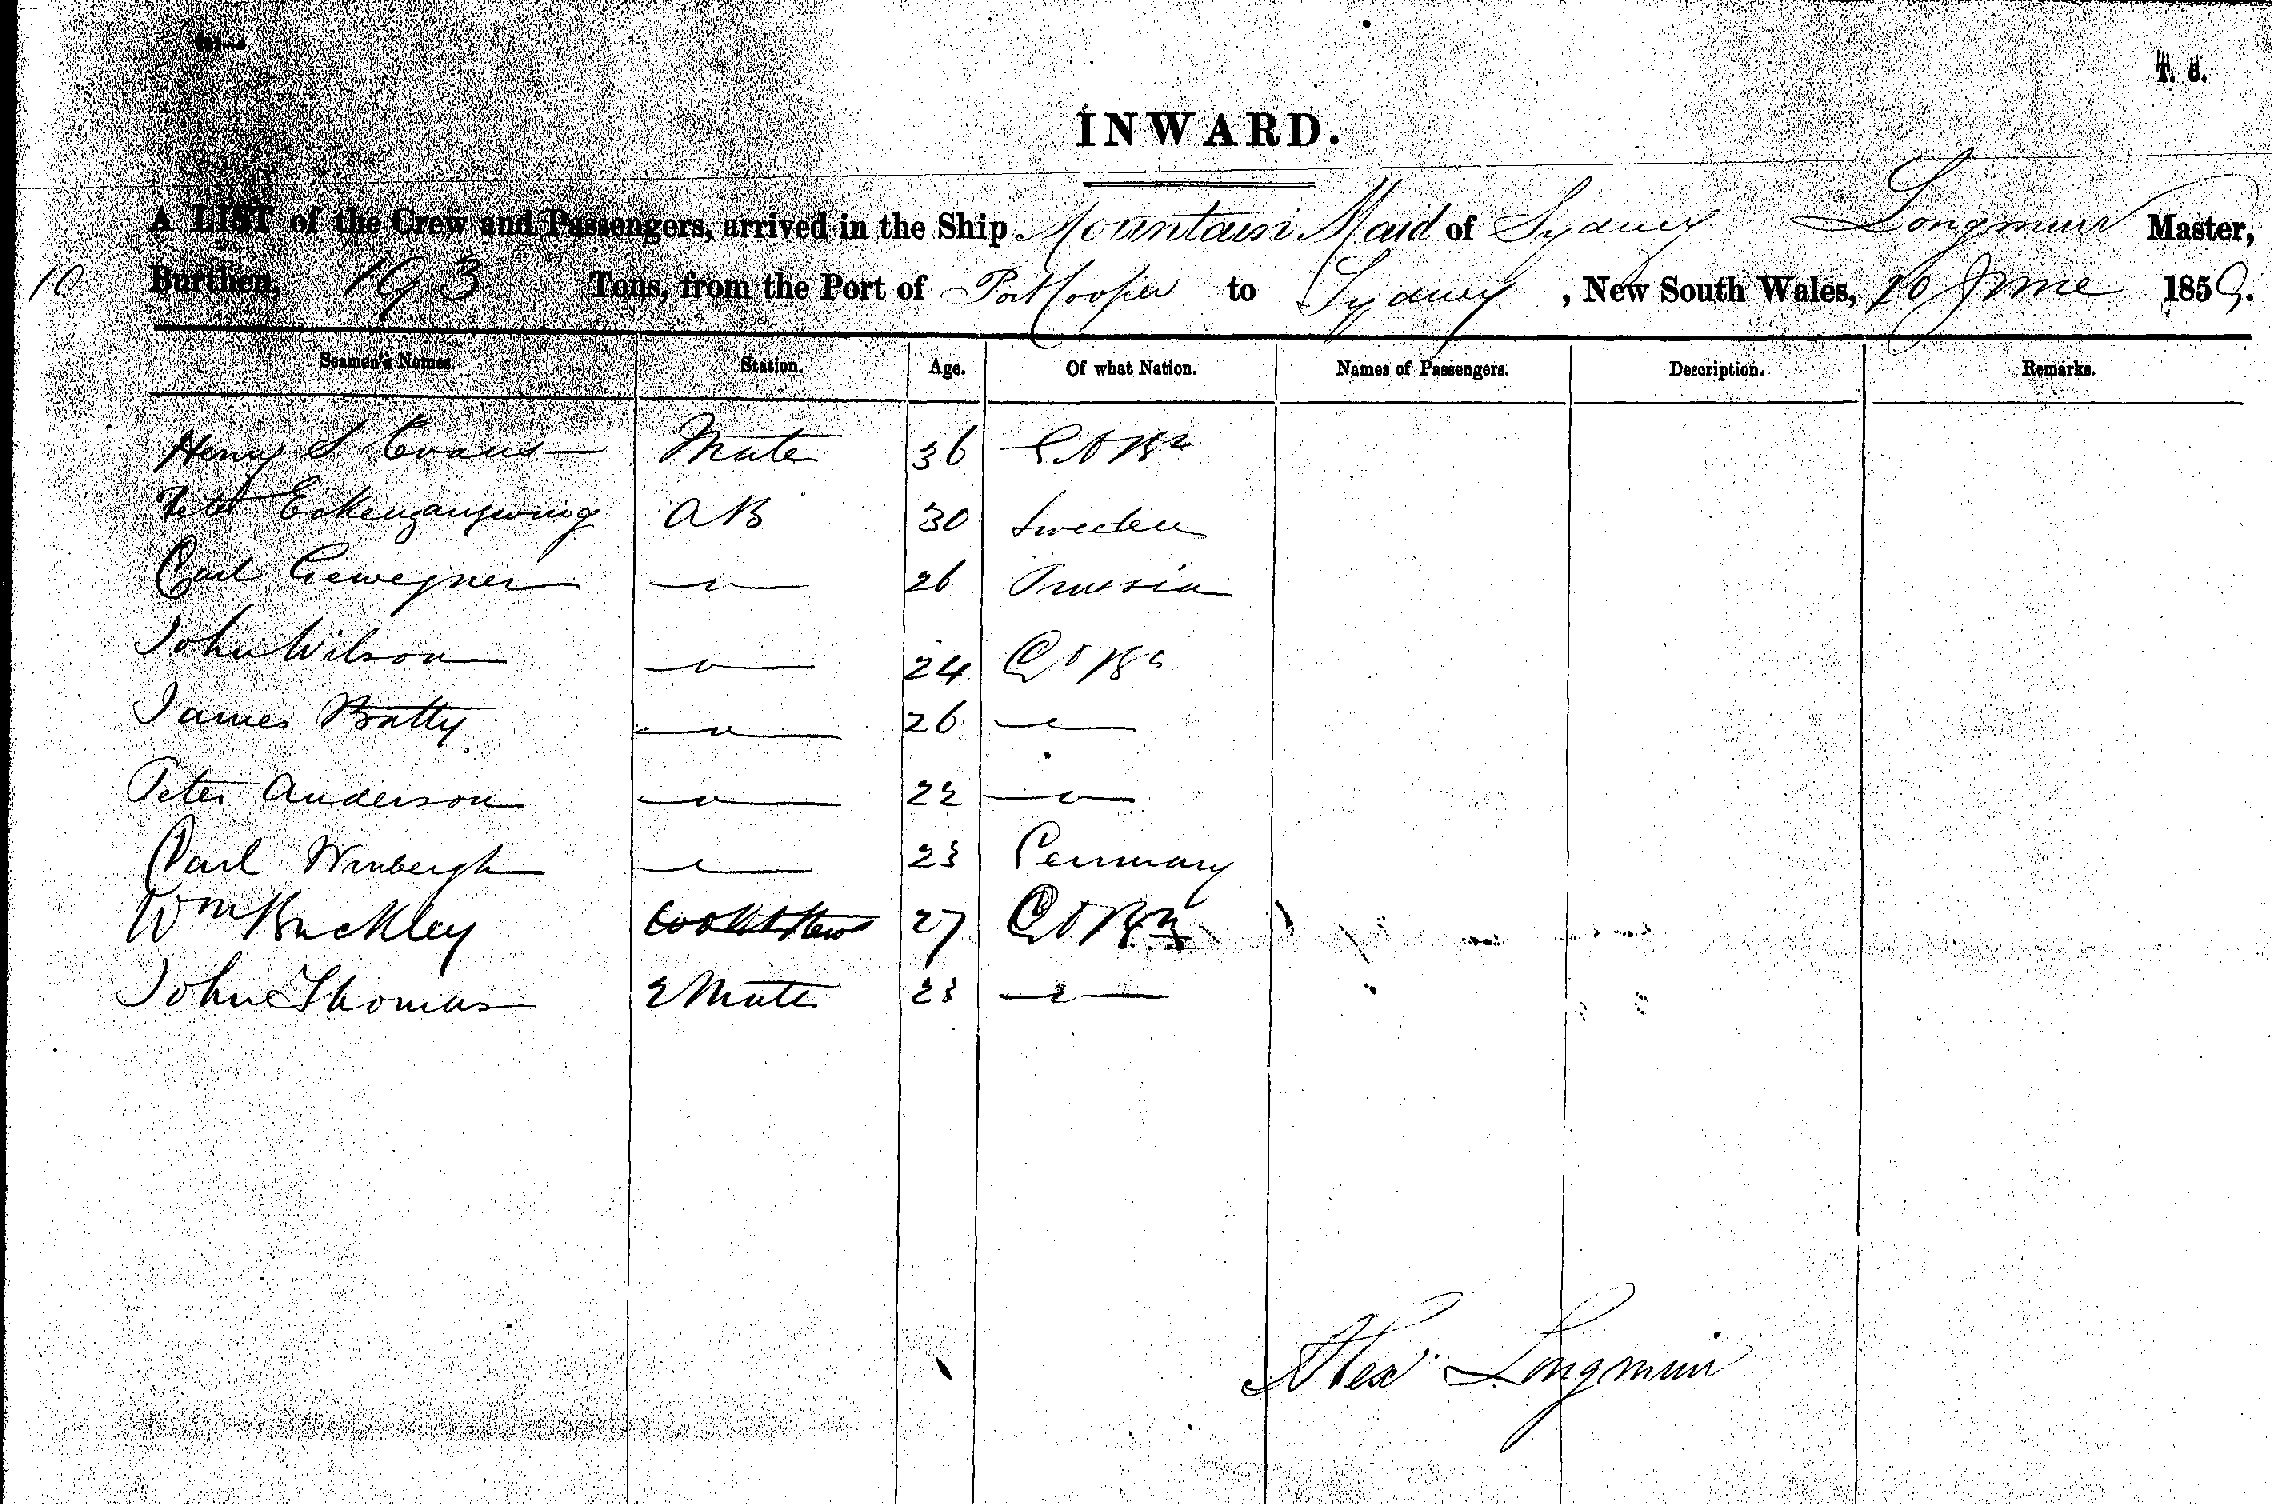 INWARD.
A LIST of the Crew and Passengers, arrived in the Ship Mountain Maid of Sydney Longmuir Master,
10 Burthen, 193 Tons, from the Port of Port Cooper to Sydney, New South Wales, 10 June 1859.
Seamen's Names. Station. Age. Of what Nation. Names of Passengers. Description. Remarks.
Henry S Evans Mate 36
AB 30 Sweden
Carl 26 Prussia
John Wilson 24
James Bratty 26
Peter Anderson 22
Carl 23 Germany
Wm Buckley 27
John Thomas 2 Mate 23
Alexr Longmuir